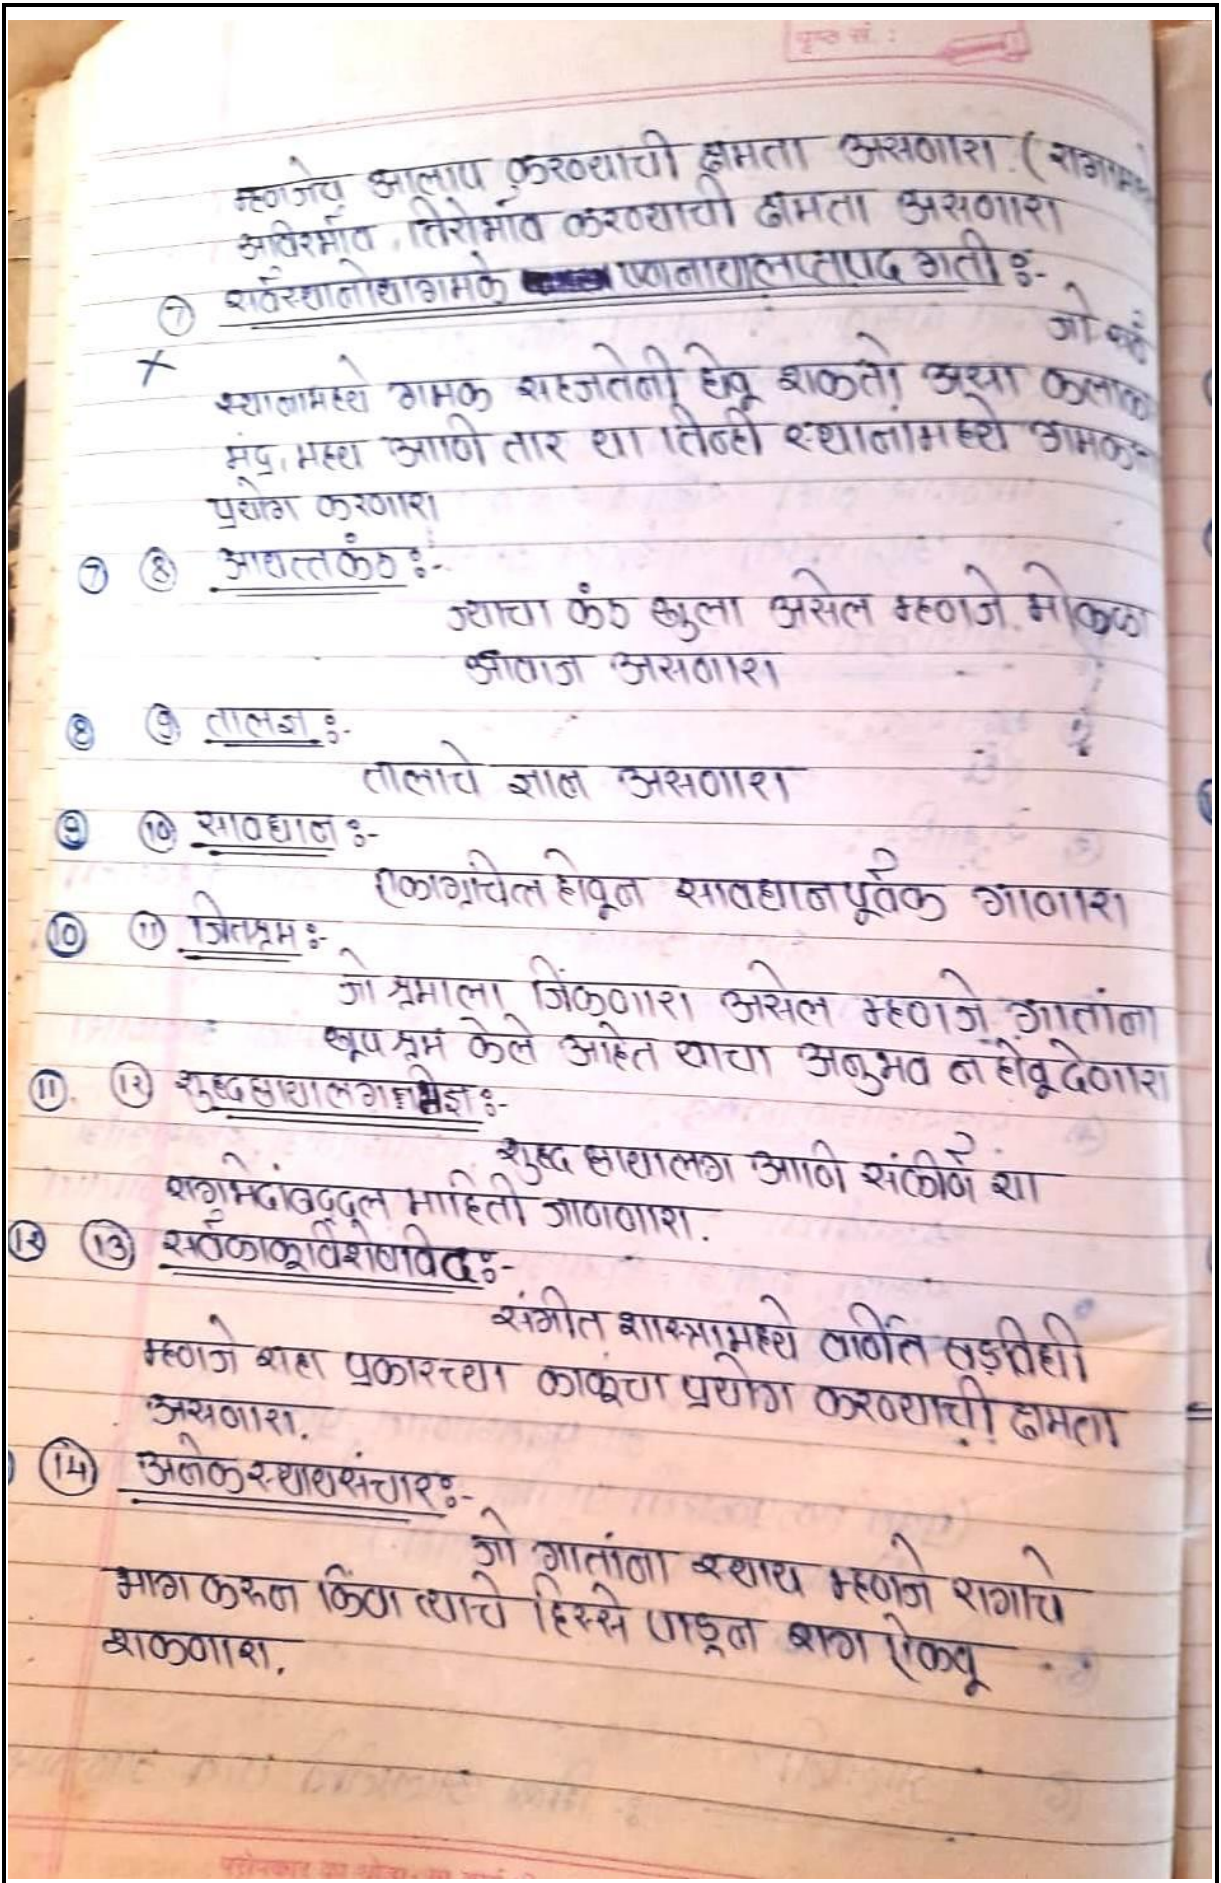 पृष्ठ सं. :
म्हणजेच आलाप करण्याची क्षमता असणारा. (रागामध्ये
आविर्भाव, तिरोभाव करण्याची क्षमता असणारा
⑦ सर्वस्थानोथागमके ष्वनायालप्तपद गती :-
जो सर्व
×
स्थानामध्ये गामक सहजतेनी होवू शकतो असा
मंद्र, मध्य आणि तार या तिन्ही स्थानांमध्ये
प्रयोग करणारा
⑦ ⑧ आयत्तकंठ :-
ज्याचा कंठ खुला असेल म्हणजे मोकळा
आवाज असणारा
⑧ ⑨ तालज्ञ :-
तालाचे ज्ञान असणारा
⑨ ⑩ सावधान :-
एकाग्रचित्त होवून सावधानपूर्वक गाणारा
⑩ ⑪ जितश्रम :-
जो श्रमाला जिंकणारा असेल म्हणजे गातांना
खूप श्रम केले आहेत याचा अनुभव न होवू देणारा
⑪. ⑫ शुध्दछायालगभिज्ञ :-
शुध्द छायालग आणि संकीर्ण या
रागभेदांबद्दल माहिती जाणणारा.
⑫ ⑬ सर्वकाकूविशेषविद :-
संगीत शास्त्रामध्ये वर्णित
म्हणजे सहा प्रकारच्या काकूंचा प्रयोग करण्याची क्षमता
असणारा.
⑭ अनेकस्थायसंचार :-
जो गातांना स्थाय म्हणजे रागाचे
भाग करून किंवा त्याचे हिस्से पाडून राग ऐकवू
शकणारा.